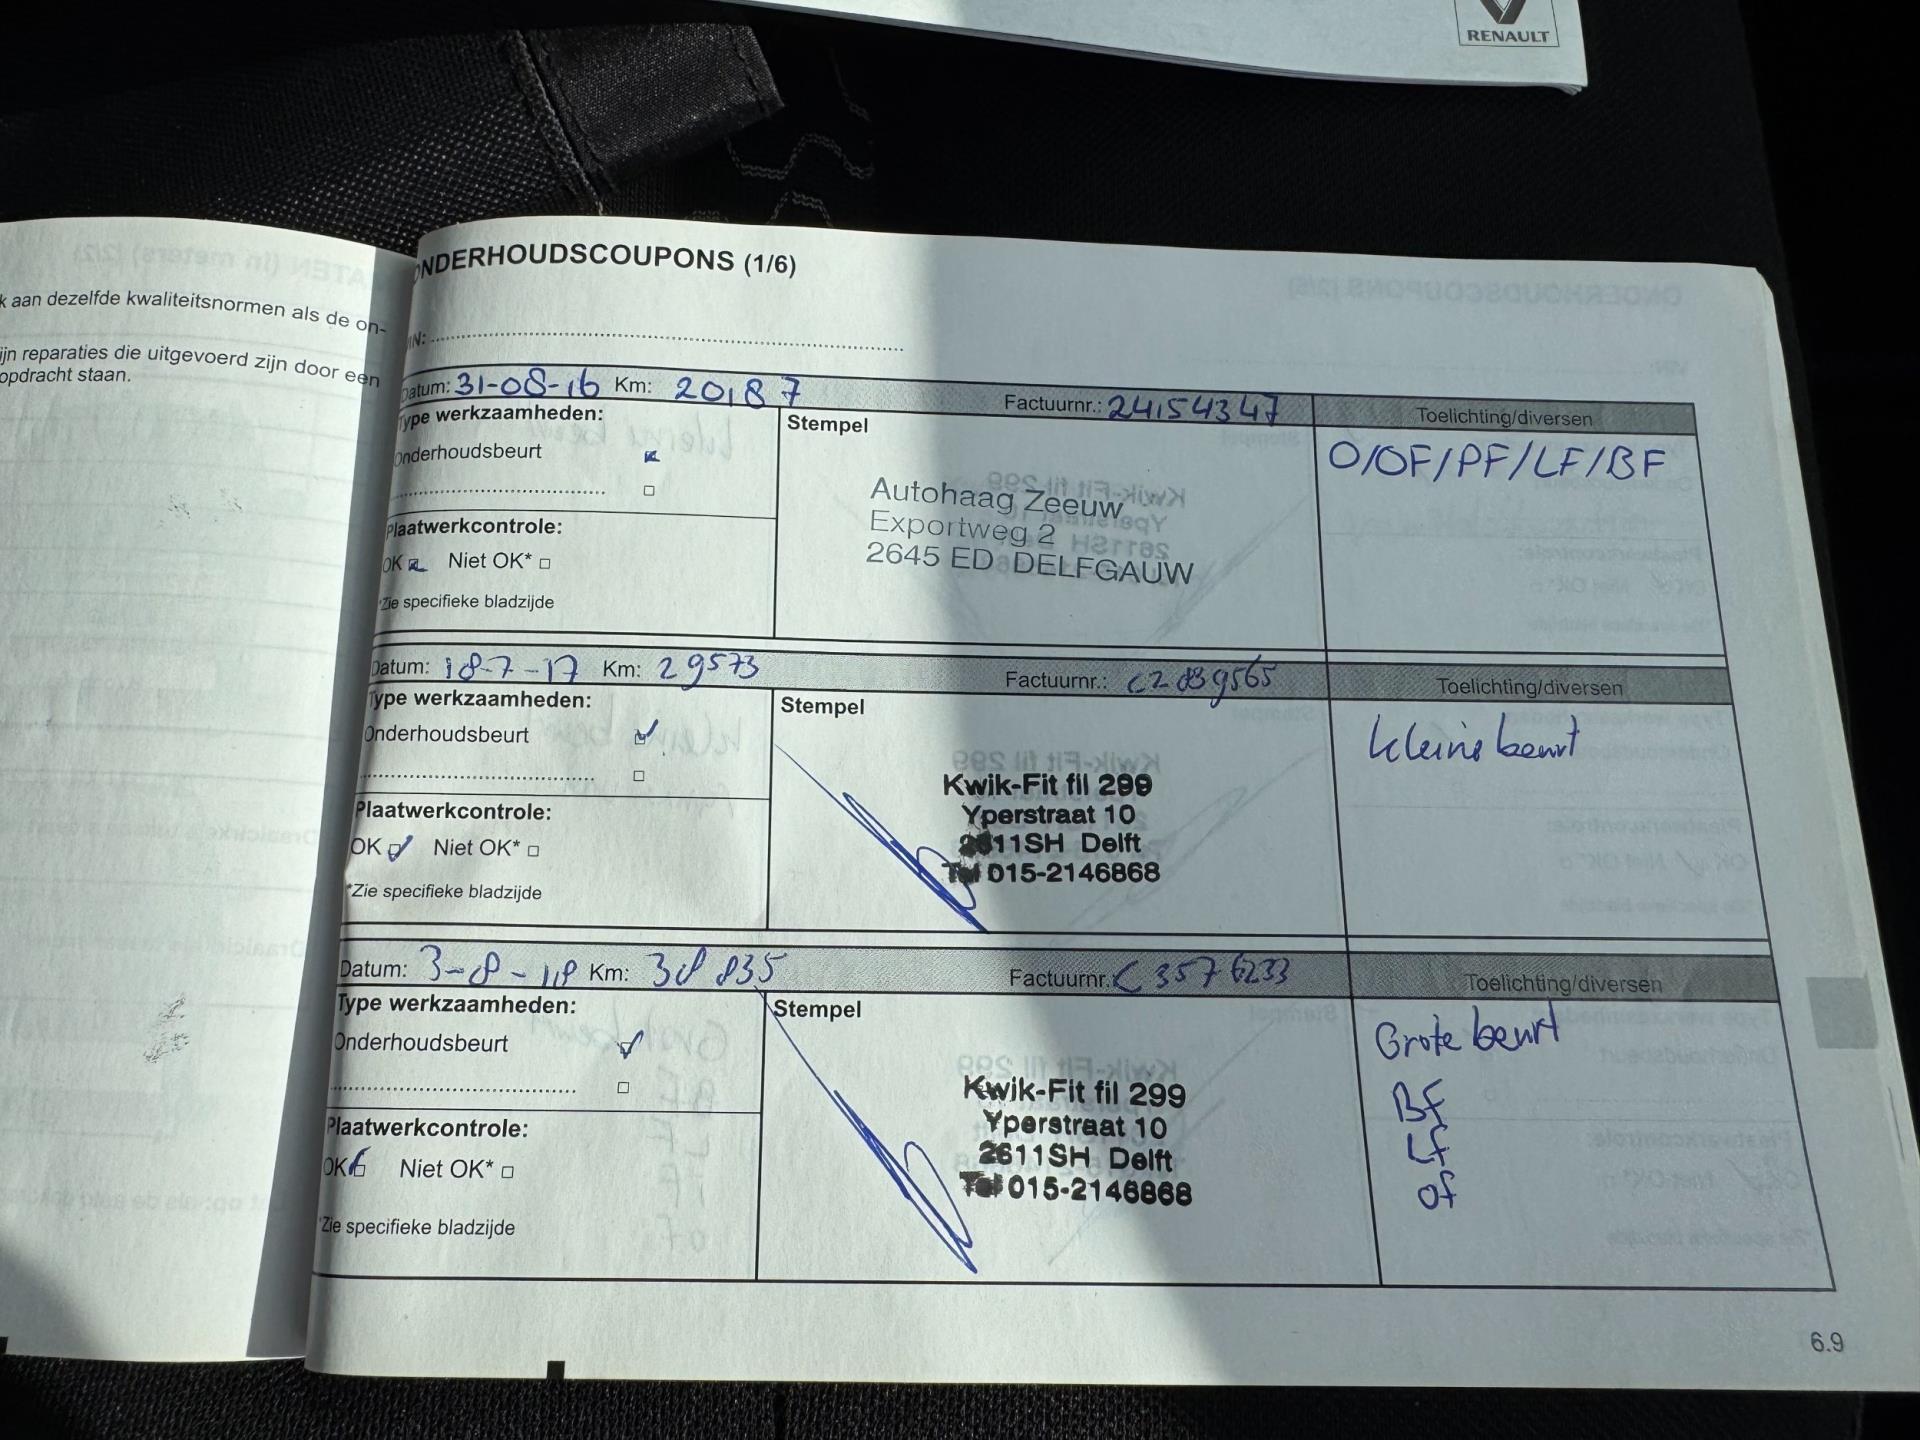 RENAULT
k aan dezelfde kwaliteitsnormen als de on-
ijn reparaties die uitgevoerd zijn door een
opdracht staan.
ONDERHOUDSCOUPONS (1/6)
IN:
Datum: 31-08-16 Km: 20187 Factuurnr.: 24154347 Toelichting/diversen
Type werkzaamheden:
Stempel
Onderhoudsbeurt
O/OF/PF/LF/BF
Autohaag Zeeuw
Exportweg 2
2645 ED DELFGAUW
Plaatwerkcontrole:
OK Niet OK*
*Zie specifieke bladzijde
Datum: 18-7-17 Km: 29573 Factuurnr.: C2839565 Toelichting/diversen
Type werkzaamheden:
Stempel
Onderhoudsbeurt
kleine beurt
Kwik-Fit fil 299
Yperstraat 10
2611SH Delft
Tel 015-2146868
Plaatwerkcontrole:
OK Niet OK*
*Zie specifieke bladzijde
Datum: 3-8-18 Km: 38835 Factuurnr. C3576233 Toelichting/diversen
Type werkzaamheden:
Stempel
Onderhoudsbeurt
Grote beurt
BF
LF
OF
Kwik-Fit fil 299
Yperstraat 10
2611SH Delft
Tel 015-2146868
Plaatwerkcontrole:
OK Niet OK*
*Zie specifieke bladzijde
6.9